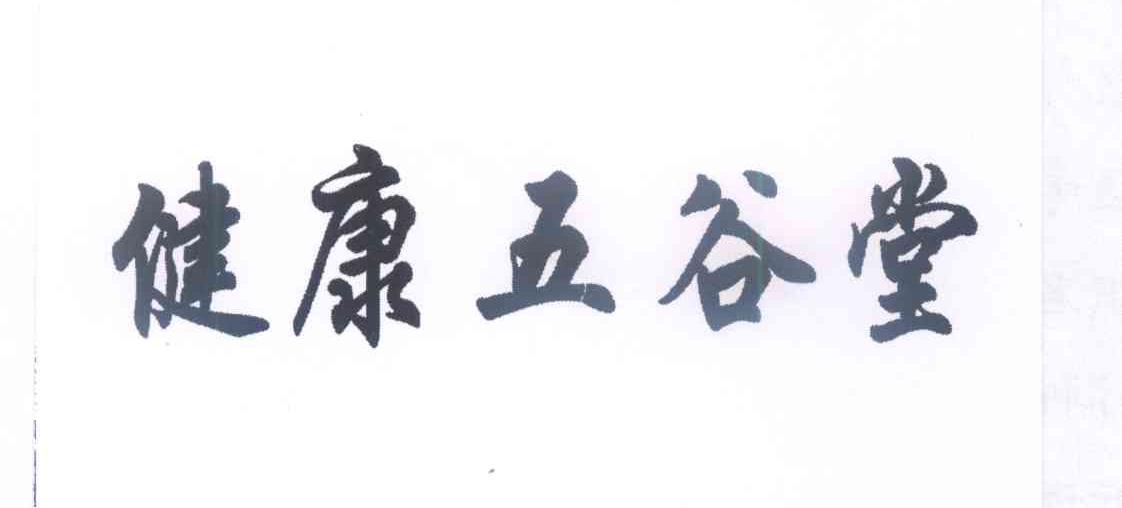 健康五谷堂